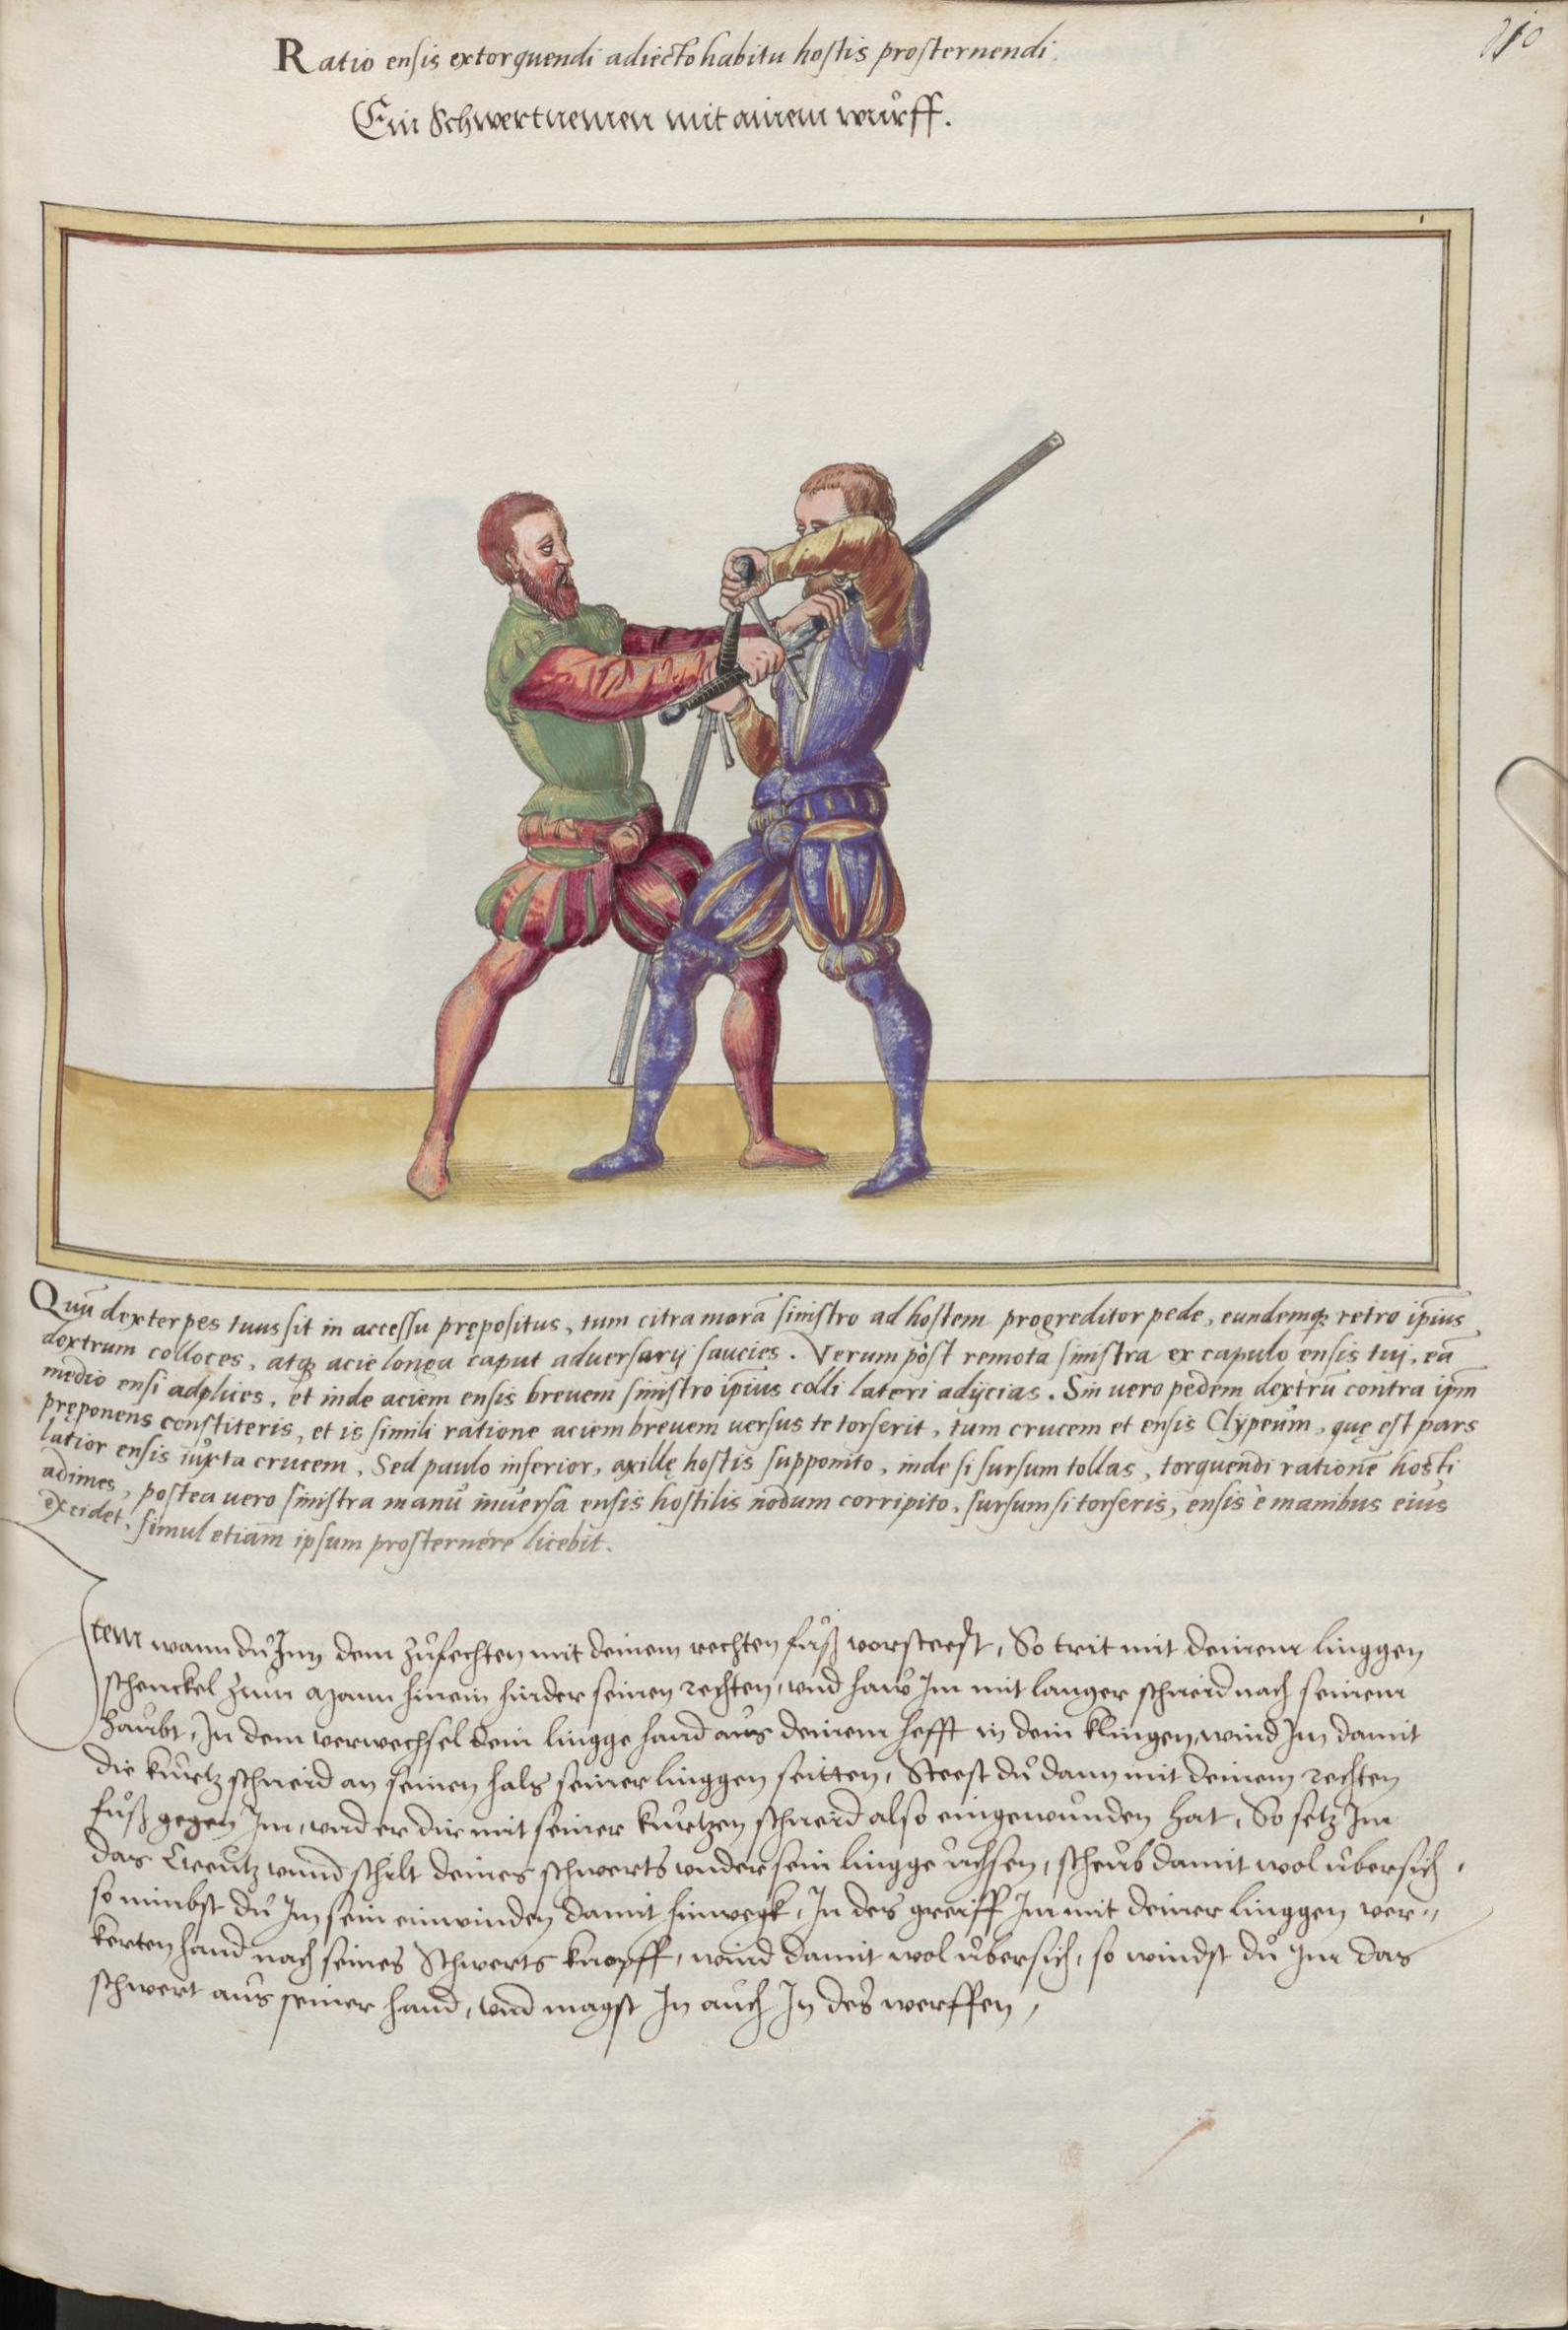 Ratio ensis extorquendi adiecto habitu hostis prosternendi.
Ein Schwertnemen mit ainem wůrff.
Quū dexter pes tuus sit in accessu prępositus, tum citra morā sinistro ad hostem progreditor pede, eundemq; retro ip̄ius
dextrum colloces, atq; acie longa caput adversarij saucies. Verum pòst remota sinistra ex capulo ensis tui, eā
medio ensi adplices, et inde aciem ensis brevem sinistro ip̄ius colli lateri adijcias. Sin uero pedem dextrū contra ip̄m
pręponens constiteris, et is simili ratione aciem brevem uersus te torserit, tum crucem et ensis Clÿpeům, quę est pars
latior ensis iůxta crucem, Sed paulo inferior, axillę hostis supponito, inde si sursum tollas, torquendi rationē hosti
adimes, postea uero sinistra manů inůersa ensis hostilis nodum corripito, sursum si torseris, ensis è manibus eiůs
excidet, simul etiam ipsum prosternere licebit.
Item wann dů Inn dem zůfechten mit deinem rechten fůß vorsteest, So trit mit deinem linggen
schenckel zům Mann hinein hinder seinen rechten, vnd haw Im mit langer schneid nach seinem
haůbt, In dem verwechsel dein lingge hand aůs deinem hefft in dein klingen, wind Im damit
die kůrtz schneid an seinen hals seiner linggen seitten, Steest dů dann mit deinem rechten
fůß gegen Im, vnd er dir mit seiner kůrtzen schneid also eingewůnden hat, So setz Im
das Creůtz vnnd schilt deines schwerts vnder sein lingge ůchsen, scheůb damit wol ůbersich,
so nimbst dů Im sein einwinden damit hinwegk, In des greiff Im mit deiner linggen ver„
kerten hand nach seines Schwerts knopff, wind damit wol ůbersich, so windst dů Im das
schwert aůs seiner hand, vnd magst In aůch In des werffen,